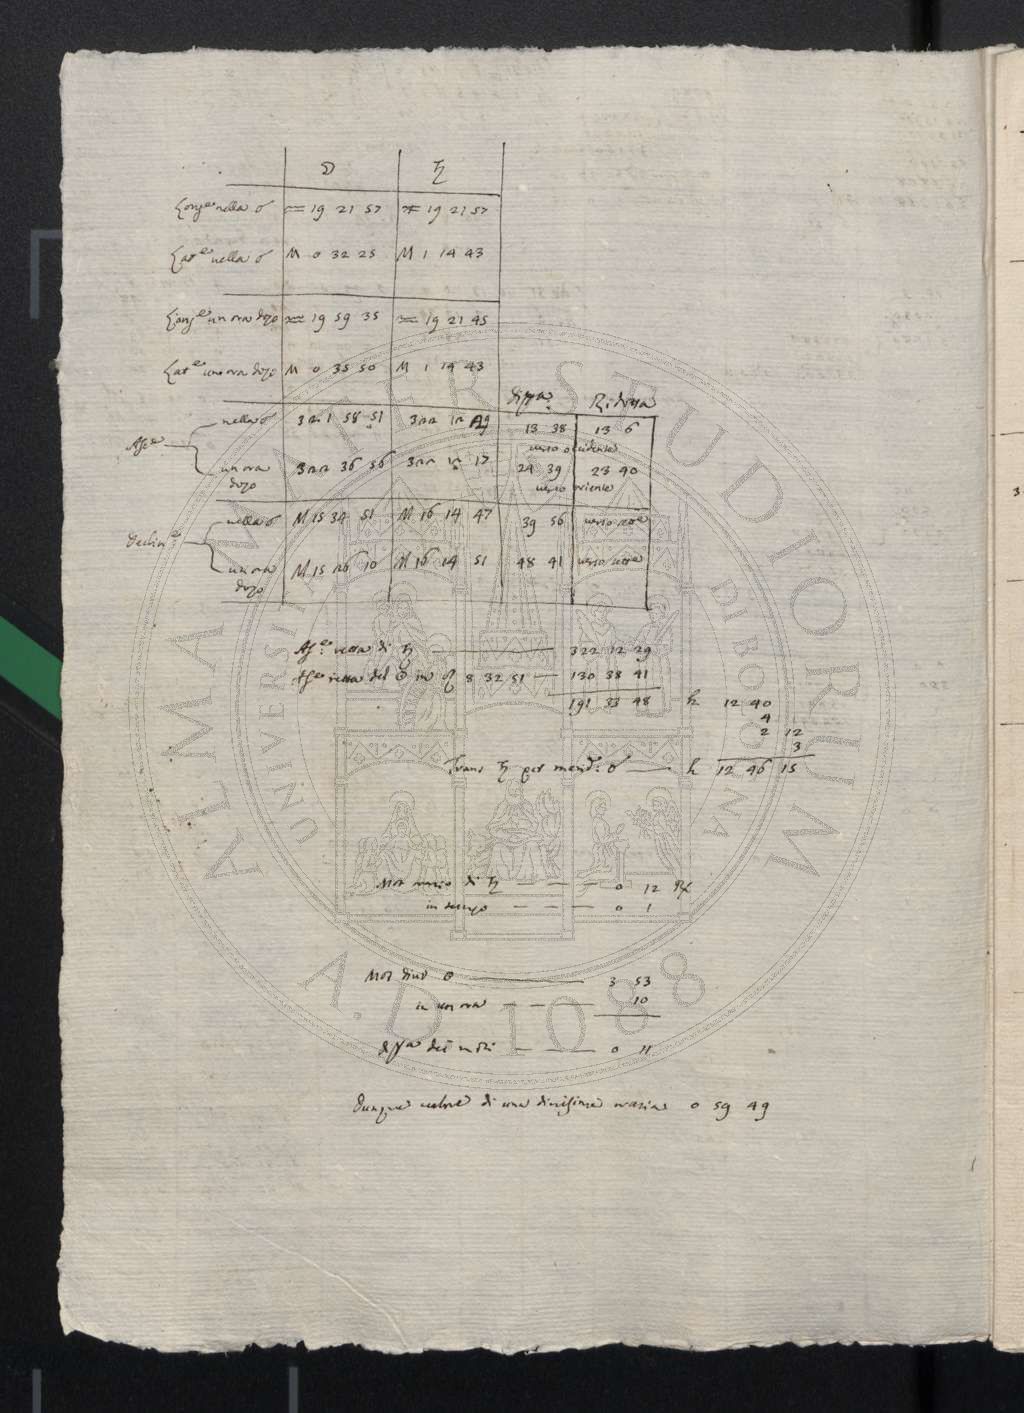 ☽ ♄
Long.e nella ☌ ♒ 19 21 57 ♒ 19 21 57
Lat.e nella ☌ M 0 32 25 M 1 14 43
Long.e un ora dopo ♒ 19 59 35 ♒ 19 21 45
Lat.e un ora dopo M 0 35 50 M 1 14 43
diffa. Ridotta
nella ☌ 321 58 51 322 12 29 13 38 13 6
Asc.e verso occidente
un ora dopo 322 36 56 322 12 17 24 39 23 40
verso oriente
nella ☌ M 15 34 51 M 16 14 47 39 56 verso
Declin.e
un ora dopo M 15 26 10 M 16 14 51 48 41 verso
As.e retta di ♄ 322 12 29
As.e retta del ☉ in ♌ 8 32 51 130 38 41
191 33 48 h 12 40
4
2 12
3
Trans ♄ per merid. h 12 46 15
Mot di ♄ 0 12
in tempo 0 1
Mot diur ☉ 3 53
in un ora 10
diffa dei moti 0 11
Dunque di una oraria 0 59 49
ALMA MATER STUDIORUM
UNIVERSITÀ DI BOLOGNA
A.D. 1088